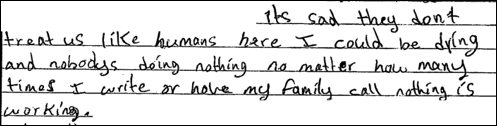 Its sad they dont
treat us like humans here I could be dying
and nobodys doing nothing no matter how many
times I write or have my family call nothing is
working.